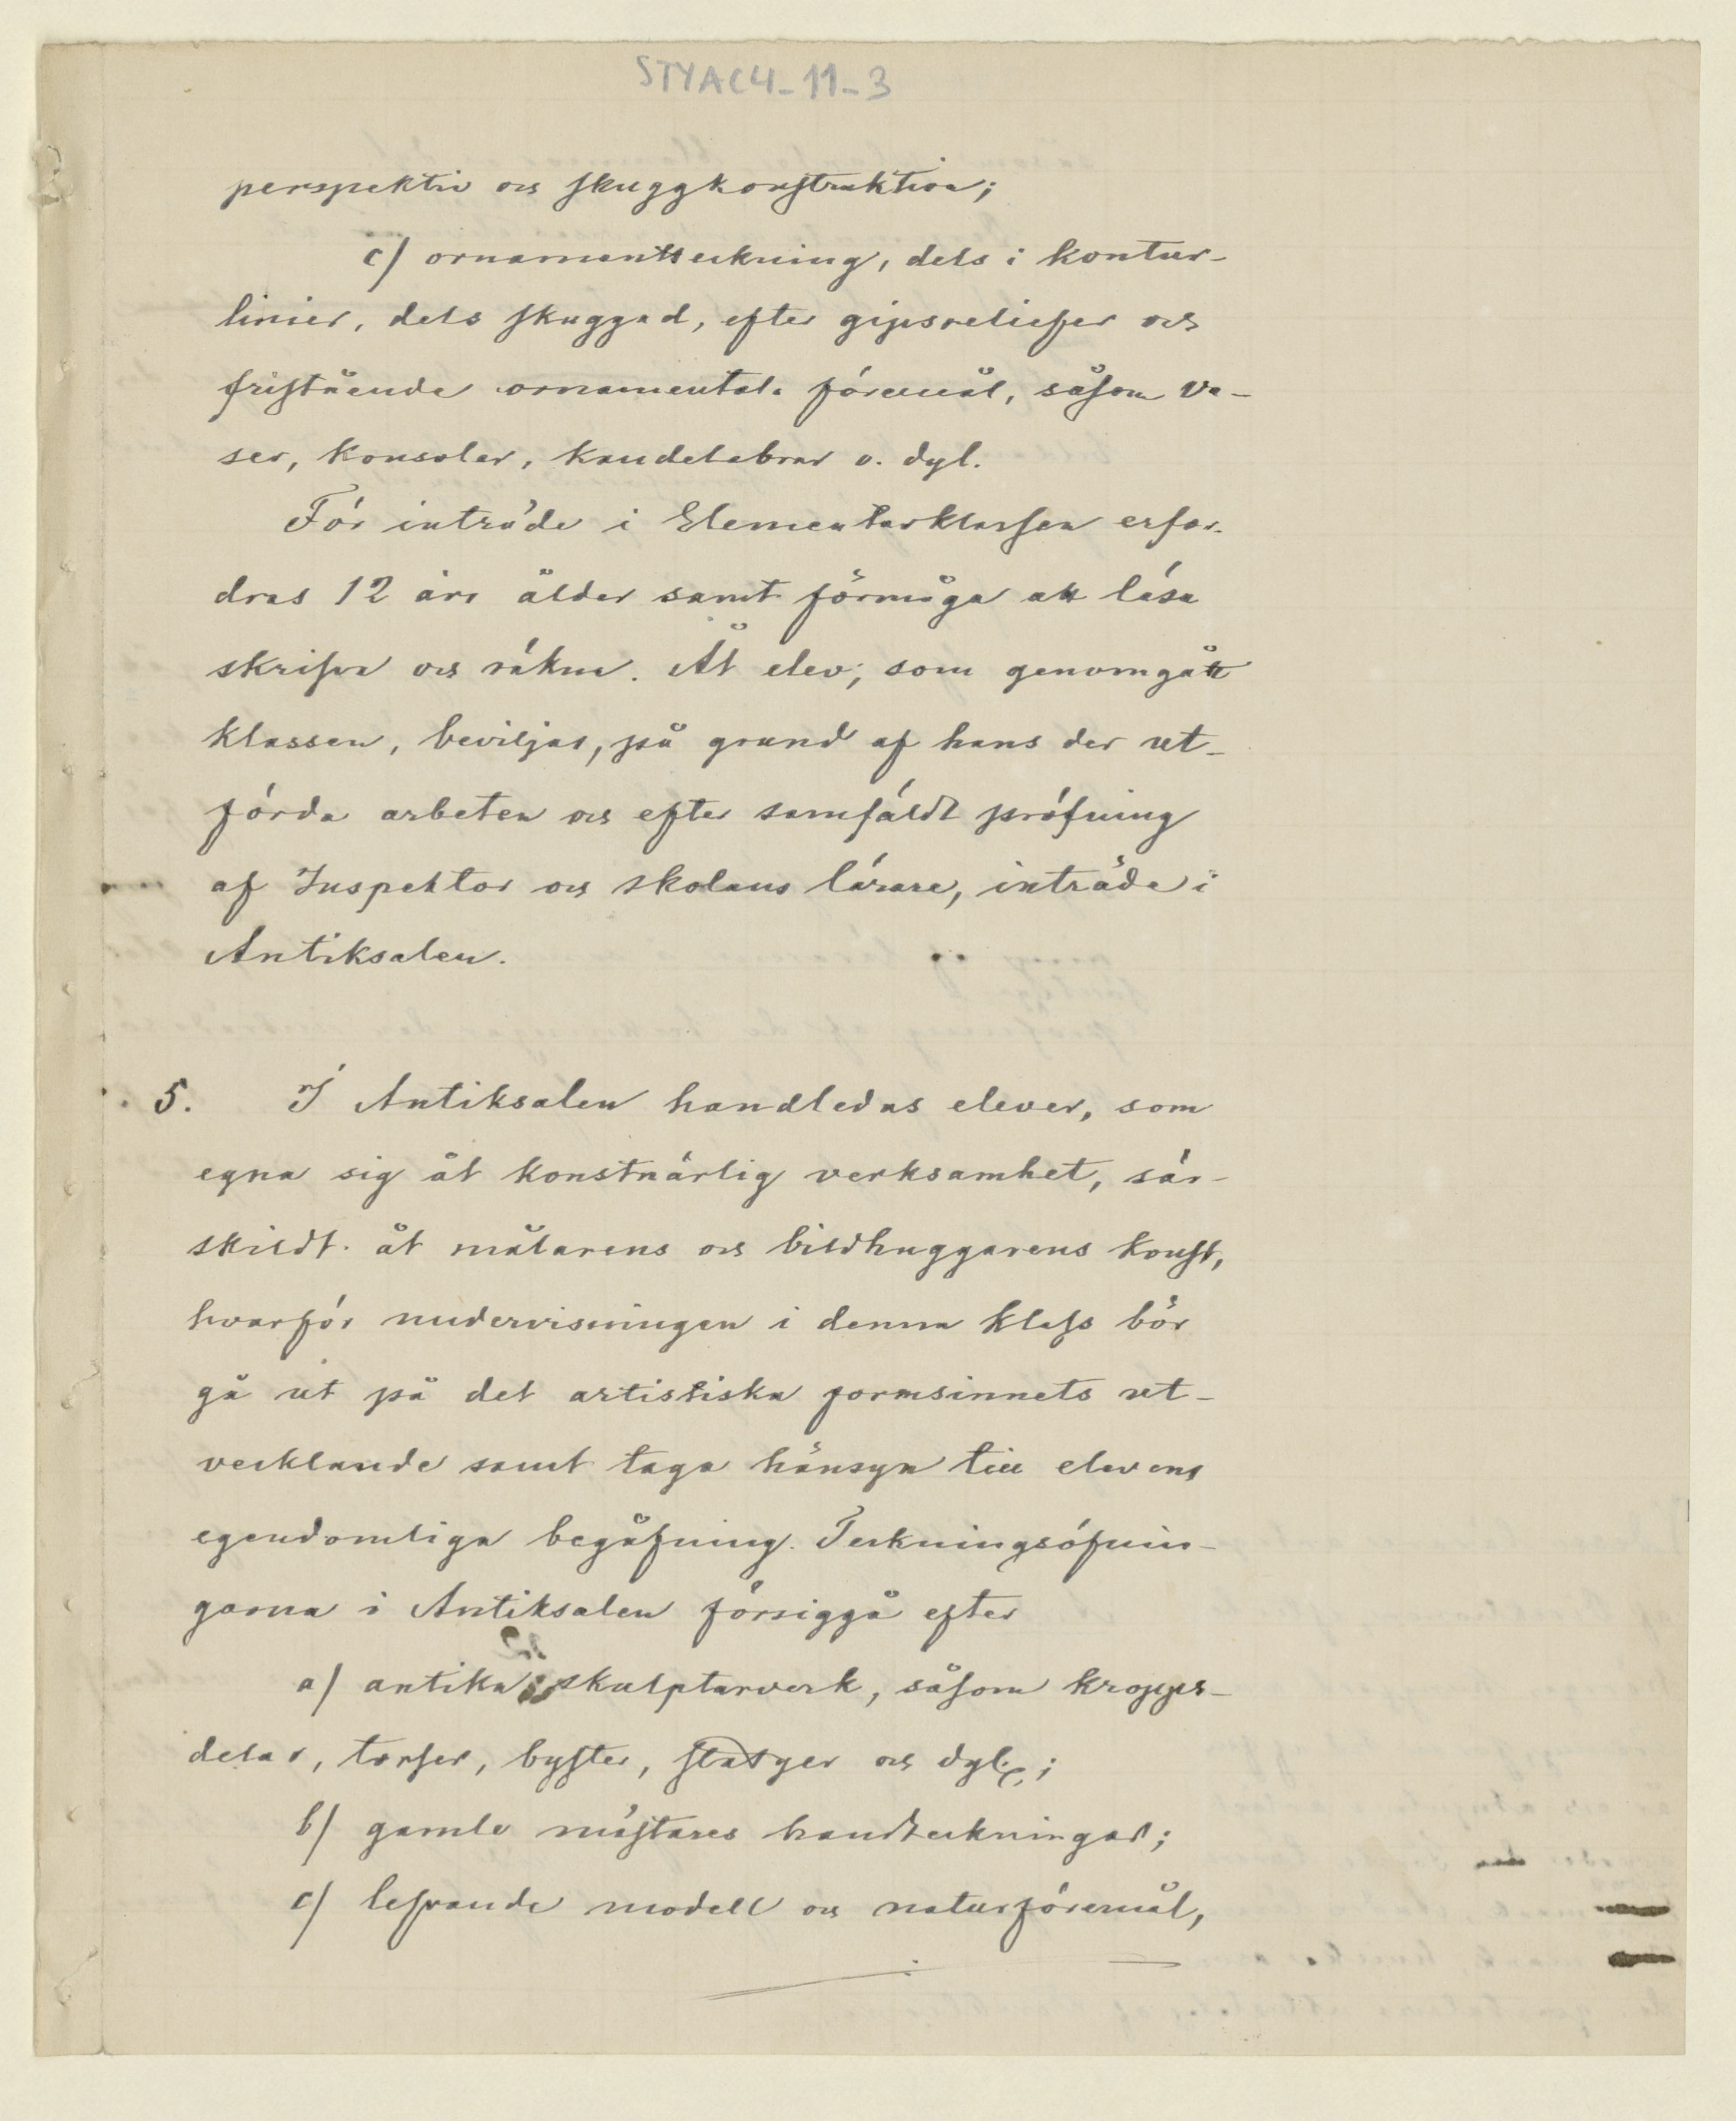 STYAC4-11-3
perspektiv och skuggkonstruktion;
c) ornamentteckning, dels i kontur-
linier, dels skuggad, efter gipsreliefer och
fristående ornamentala föremål, såsom va-
ser, konsoler, kandelabrar o. dyl.
För inträde i Elementarklassen erfor-
dras 12 års ålder samt förmåga att läsa
skrifva och räkna. Åt elev, som genomgått
klassen, beviljas, på grund af hans der ut-
förda arbeten och efter samfäldt pröfning
af Inspektor och skolans lärare, inträde i
Antiksalen.
5. I Antiksalen handledas elever, som
egna sig åt konstnärlig verksamhet, sär-
skildt åt målarens och bildhuggarens konst,
hvarför undervisningen i denna klass bör
gå ut på det artistiska formsinnets ut-
vecklande samt taga hänsyn till elevens
egendomliga begåfning. Teckningsöfnin-
garna i Antiksalen försiggå efter
a) antika skulpturverk, såsom kropps-
delar, torser, byster, statyer och dyl.;
b) gamle mästares handteckningar;
c) lefvande modell och naturföremål,